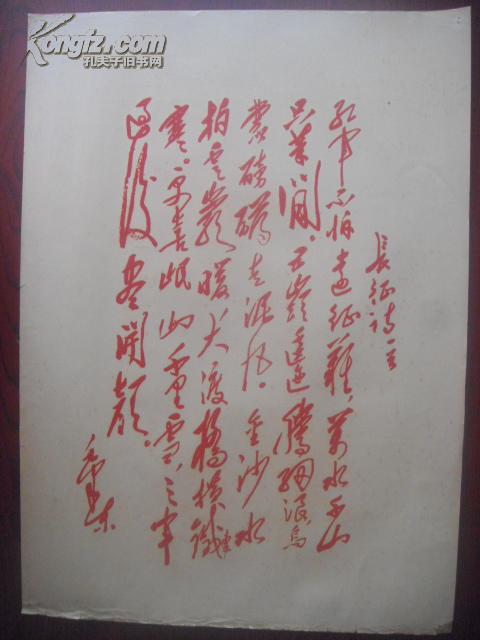 Kongfz.com
孔夫子旧书网
長征詩一首
紅軍不怕遠征難,萬水千山
只等閒。五嶺逶迤騰細浪,烏
蒙磅礴走泥丸。金沙水
拍雲崖暖,大渡橋橫鐵索
寒。更喜岷山千里雪,三軍
過後盡開顏。
毛澤東